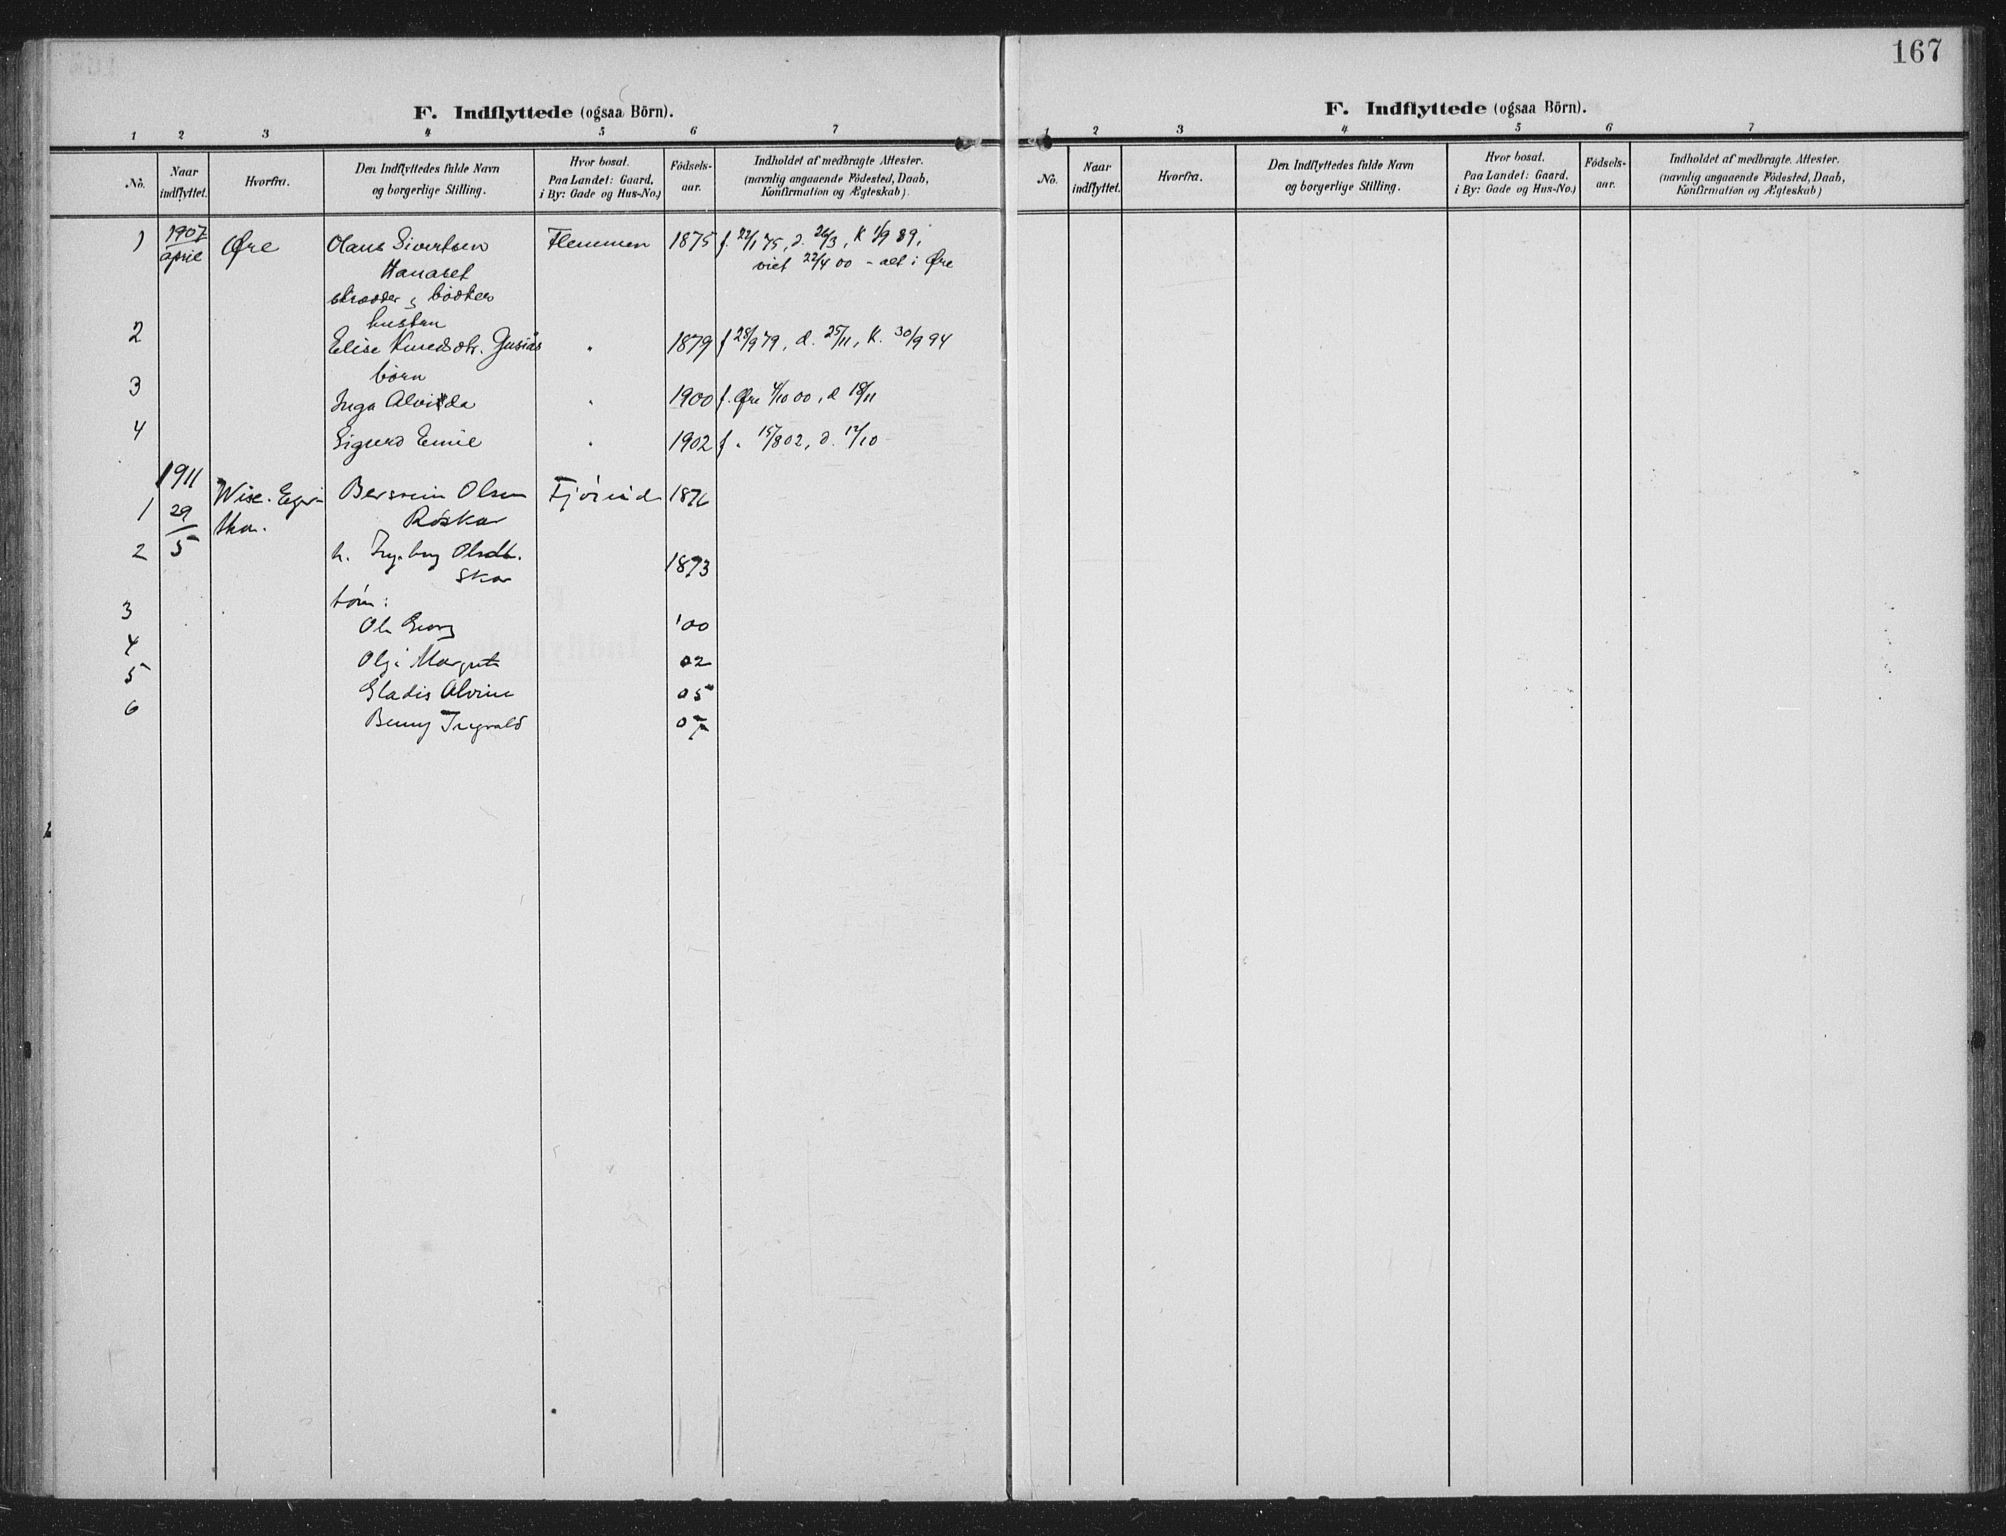 167
F. Indflyttede (ogsaa Börn).
1 2 3 4 5 6 7
No. Naar indflyttet. Hvorfra. Den Indflyttedes fulde Navn og borgerlige Stilling. Hvor bosat. Paa Landet: Gaard, i By: Gade og Hus-No.) Födsels-aar. Indholdet af medbragte Attester. (navnlig angaaende Födested, Daab, Konfirmation og Ægteskab).
1 1907 april Øre Olaus Sivertsen Flemmen 1875 f. 22/1 75, d. 26/3, K 1/9 89,
Hanaset viet 22/4 00 - alt i Øre
skrædder & bödker
hustru
2 Elise Knudsdtr. Gusiås " 1879 f 28/9 79, d. 25/11, K. 30/9 94
börn
3 Inga Alvilda " 1900 f. Øre 4/10 00, d 18/11
4 Sigurd Emil " 1902 f " 15/8 02, d. 12/10
1911
1 29/5 Wisc. Bersvein Olsen 1876
Röskar
2 h. Ingeborg Olsdt. 1873
Skar
börn:
3 Ole Georg '00
4 Olga Margrete 02
5 Gladis Alvine 05
6 Benny Trygvald 07
F. Indflyttede (ogsaa Börn).
1 2 3 4 5 6 7
No. Naar indflyttet. Hvorfra. Den Indflyttedes fulde Navn og borgerlige Stilling. Hvor bosat. Paa Landet: Gaard. i By: Gade og Hus-No.) Födsels-aar. Indholdet af medbragte. Attester. (navnlig angaaende Födested, Daab, Konfirmation og Ægteskab)